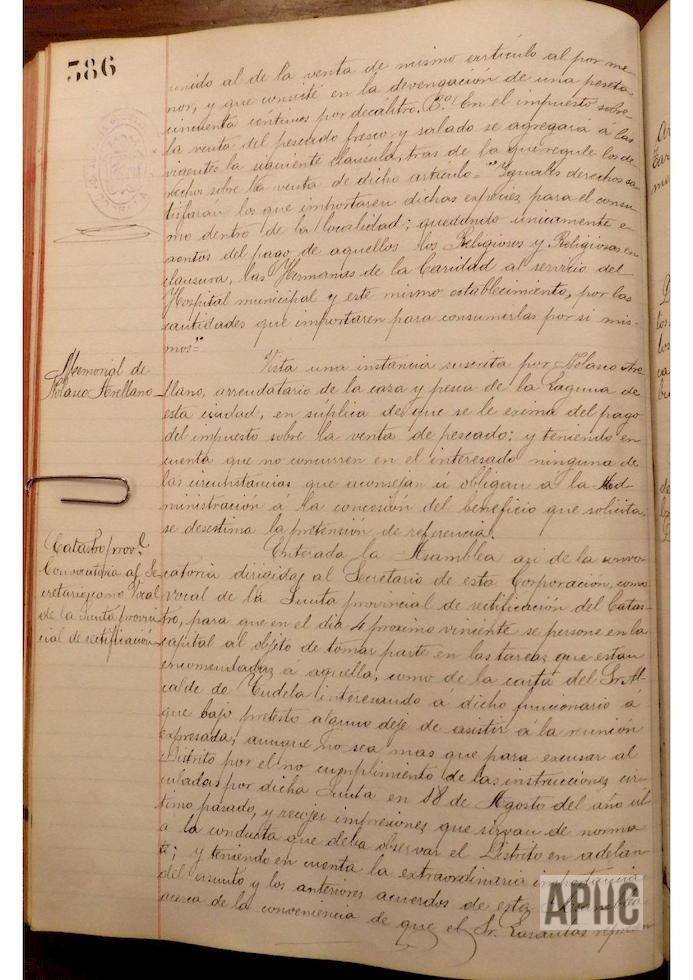 386
unido al de la venta de mismo artículo al por me-
nor, y que consité en la devengación de una peseta
cincuenta céntimos por decálitro. En el impuesto sobre
la venta del pescado fresco y salado se agregará á las
vigentes la siguiente cláusula, tras de la que regule los de-
rechos sobre la venta de dicho artículo = "Iguales derechos sa-
tisfaran los que importaren dichas especies para el consu-
mo dentro de la localidad; quedando únicamente e-
xentos del pago de aquellos los Religiosos y Religiosas en
clausura, las Hermanas de la Caridad al servicio del
Hospital municipal y este mismo establecimiento, por las
cantidades que importaren para consumirlas por si mis-
mos"=
Memorial de
Nolasco Arellano
Vista una instancia suscrita por Nolasco Are-
llano, arrendatario de la caza y pesca de la Laguna de
esta ciudad, en súplica de que se le exima del pago
del impuesto sobre la venta de pescado; y teniendo en
cuenta que no concurren en el interesado ninguna de
las circunstancias que aconsejan u obligan a la Ad-
ministración á la concesión del beneficio que solicita,
se desestima la pretensión de referencia.
Catastro prov.l
Convocatoria al Se-
cretario como Vocal
de la Junta provin-
cial de rectificación
Enterada la Asamblea asi de la convo-
catoria dirigida al Secretario de esta Corporación, como
vocal de la Junta provincial de rectificación del Catas-
tro, para que en el dia 4 proximo viniente se persone en la
capital al objeto de tomar parte en las tareas que estan
encomendadas á aquella, como de la carta del Sr. Al-
calde de Tudela interesando á dicho funcionario á
que bajo pretesto alguno deje de asistir á la reunión
expresada, aunque no sea mas que para excusar al
Distrito por el no cumplimiento de las instrucciones cir-
culadas por dicha Junta en 18 de Agosto del año úl-
timo pasado, y recojer impresiones que sirvan de norma
a la conducta que deba observar el Distrito en adelan-
te; y teniendo en cuenta la extraordinaria importancia
del asunto y los anteriores acuerdos de esta
acerca de la conveniencia de que el Sr.
APHC